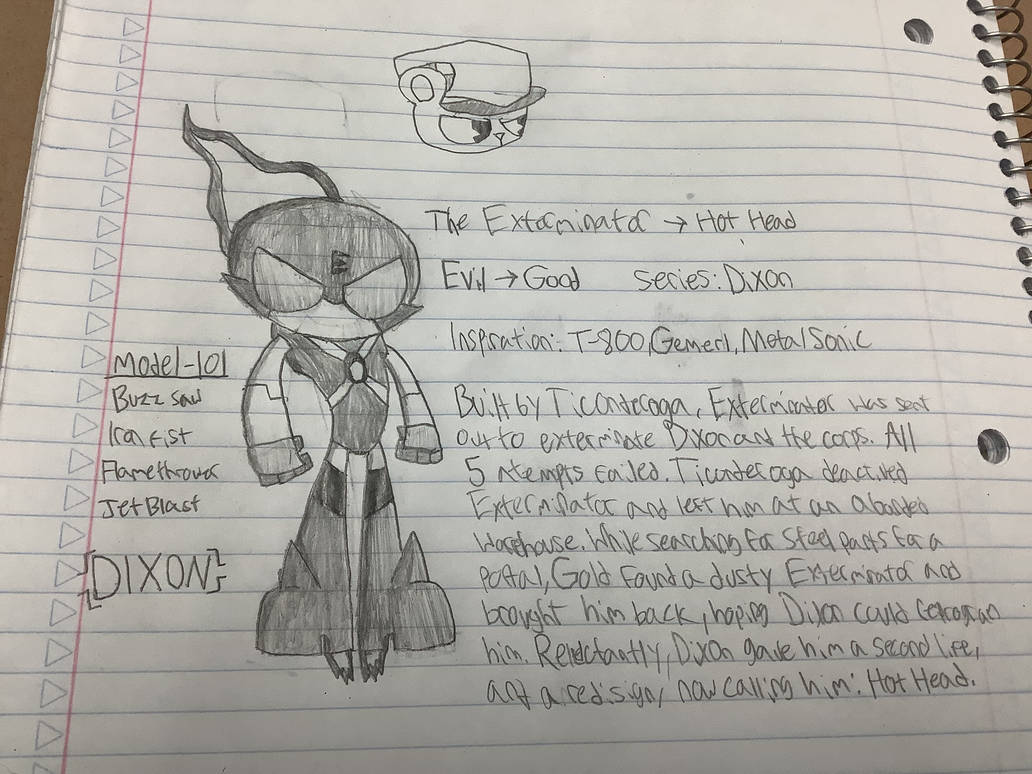 The Exterminator → Hot Head
Evil → Good series: Dixon
Inspration: T-800, Gemerl, Metal Sonic
Model-101
Buzz saw
Iron Fist
Flamethrower
Jet Blast
[DIXON]
Built by Ticonderoga, Exterminator was sent
out to exterminate Dixon and the corps. All
5 Atempts failed. Ticonderoga deactived
Exterminator and left him at an abanded
Warehouse. While searching for steel parts for a
portal, Gold found a dusty Exterminator and
brought him back, hoping Dixon could
him. Reluctantly, Dixon gave him a second life,
and a redisign, now calling him: Hot Head.